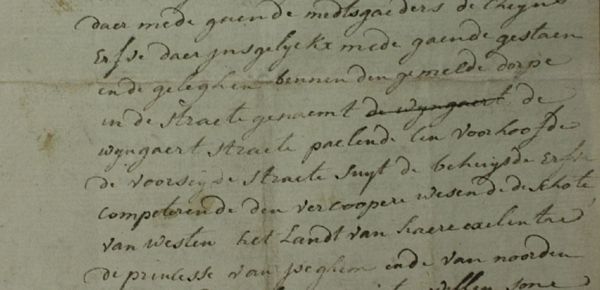 daer mede gaende medtsgaeders de Cheyns
Erfve daer insgelyckx mede gaende gestaen
ende geleghen bennen den gemelde dorpe
in de straete genaemt de wyngaert de
wyngaert straete paelende ten voorhoofde
de voorseyde straete suyt de behuysde Erfve
Competerende den vercoopere wesende de schole
van westen het Landt van haere exelentie
de princesse van jseghem ende van noorden
willem